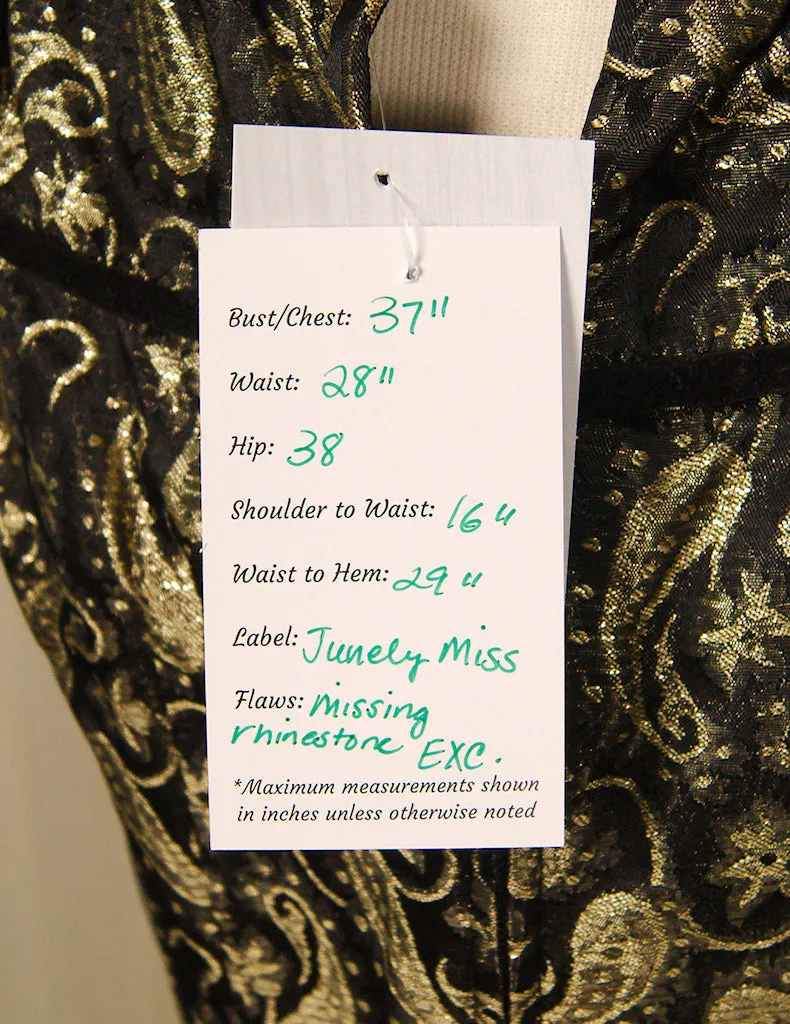 Bust/Chest: 37"
Waist: 28"
Hip: 38
Shoulder to Waist: 16"
Waist to Hem: 29"
Label: Junely Miss
Flaws: missing
rhinestone EXC.
*Maximum measurements shown
in inches unless otherwise noted